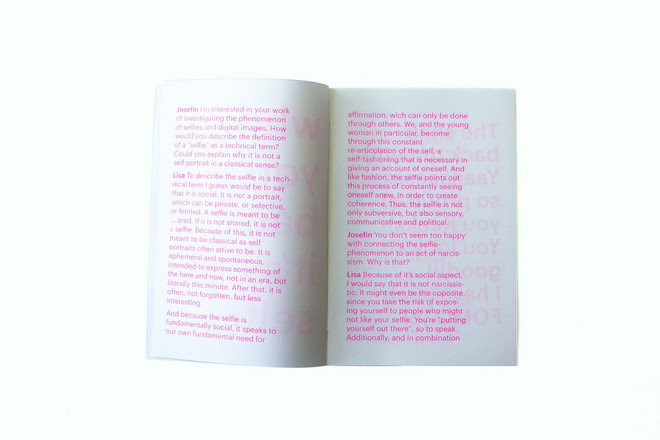 Josefin I'm interested in your work
of investigating the phenomenon
of selfies and digital images. How
would you describe the definition
of a "selfie" as a technical term?
Could you explain why it is not a
self portrait in a classical sense?
Lisa To describe the selfie in a tech-
nical term I guess would be to say
that it is social. It is not a portrait,
which can be private, or selective,
or limited. A selfie is meant to be
ared. If it is not shared, it is not
a selfie. Because of this, it is not
meant to be classical as self
portraits often strive to be. It is
ephemeral and spontaneous,
intended to express something of
the here and now, not in an era, but
literally this minute. After that, it is
often, not forgotten, but less
interesting.
And because the selfie is
fundamentally social, it speaks to
our own fundamental need for
affirmation, wich can only be done
through others. We, and the young
woman in particular, become
through this constant
re-articulation of the self, a
self-fashioning that is necessary in
giving an account of oneself. And
like fashion, the selfie points out
this process of constantly seeing
oneself anew, in order to create
coherence. Thus, the selfie is not
only subversive, but also sensory,
communicative and political.
Josefin You don't seem too happy
with connecting the selfie-
phenomenon to an act of narcis-
sism. Why is that?
Lisa Because of it's social aspect,
I would say that it is not narcissis-
tic. It might even be the opposite,
since you take the risk of expos-
ing yourself to people who might
not like your selfie. You're "putting
yourself out there", so to speak.
Additionally, and in combination